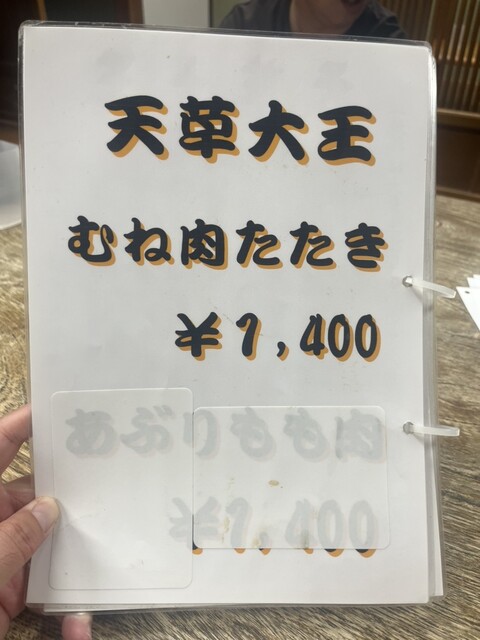 天草大王
むね肉たたき
¥1,400
あぶりもも肉
¥1,400